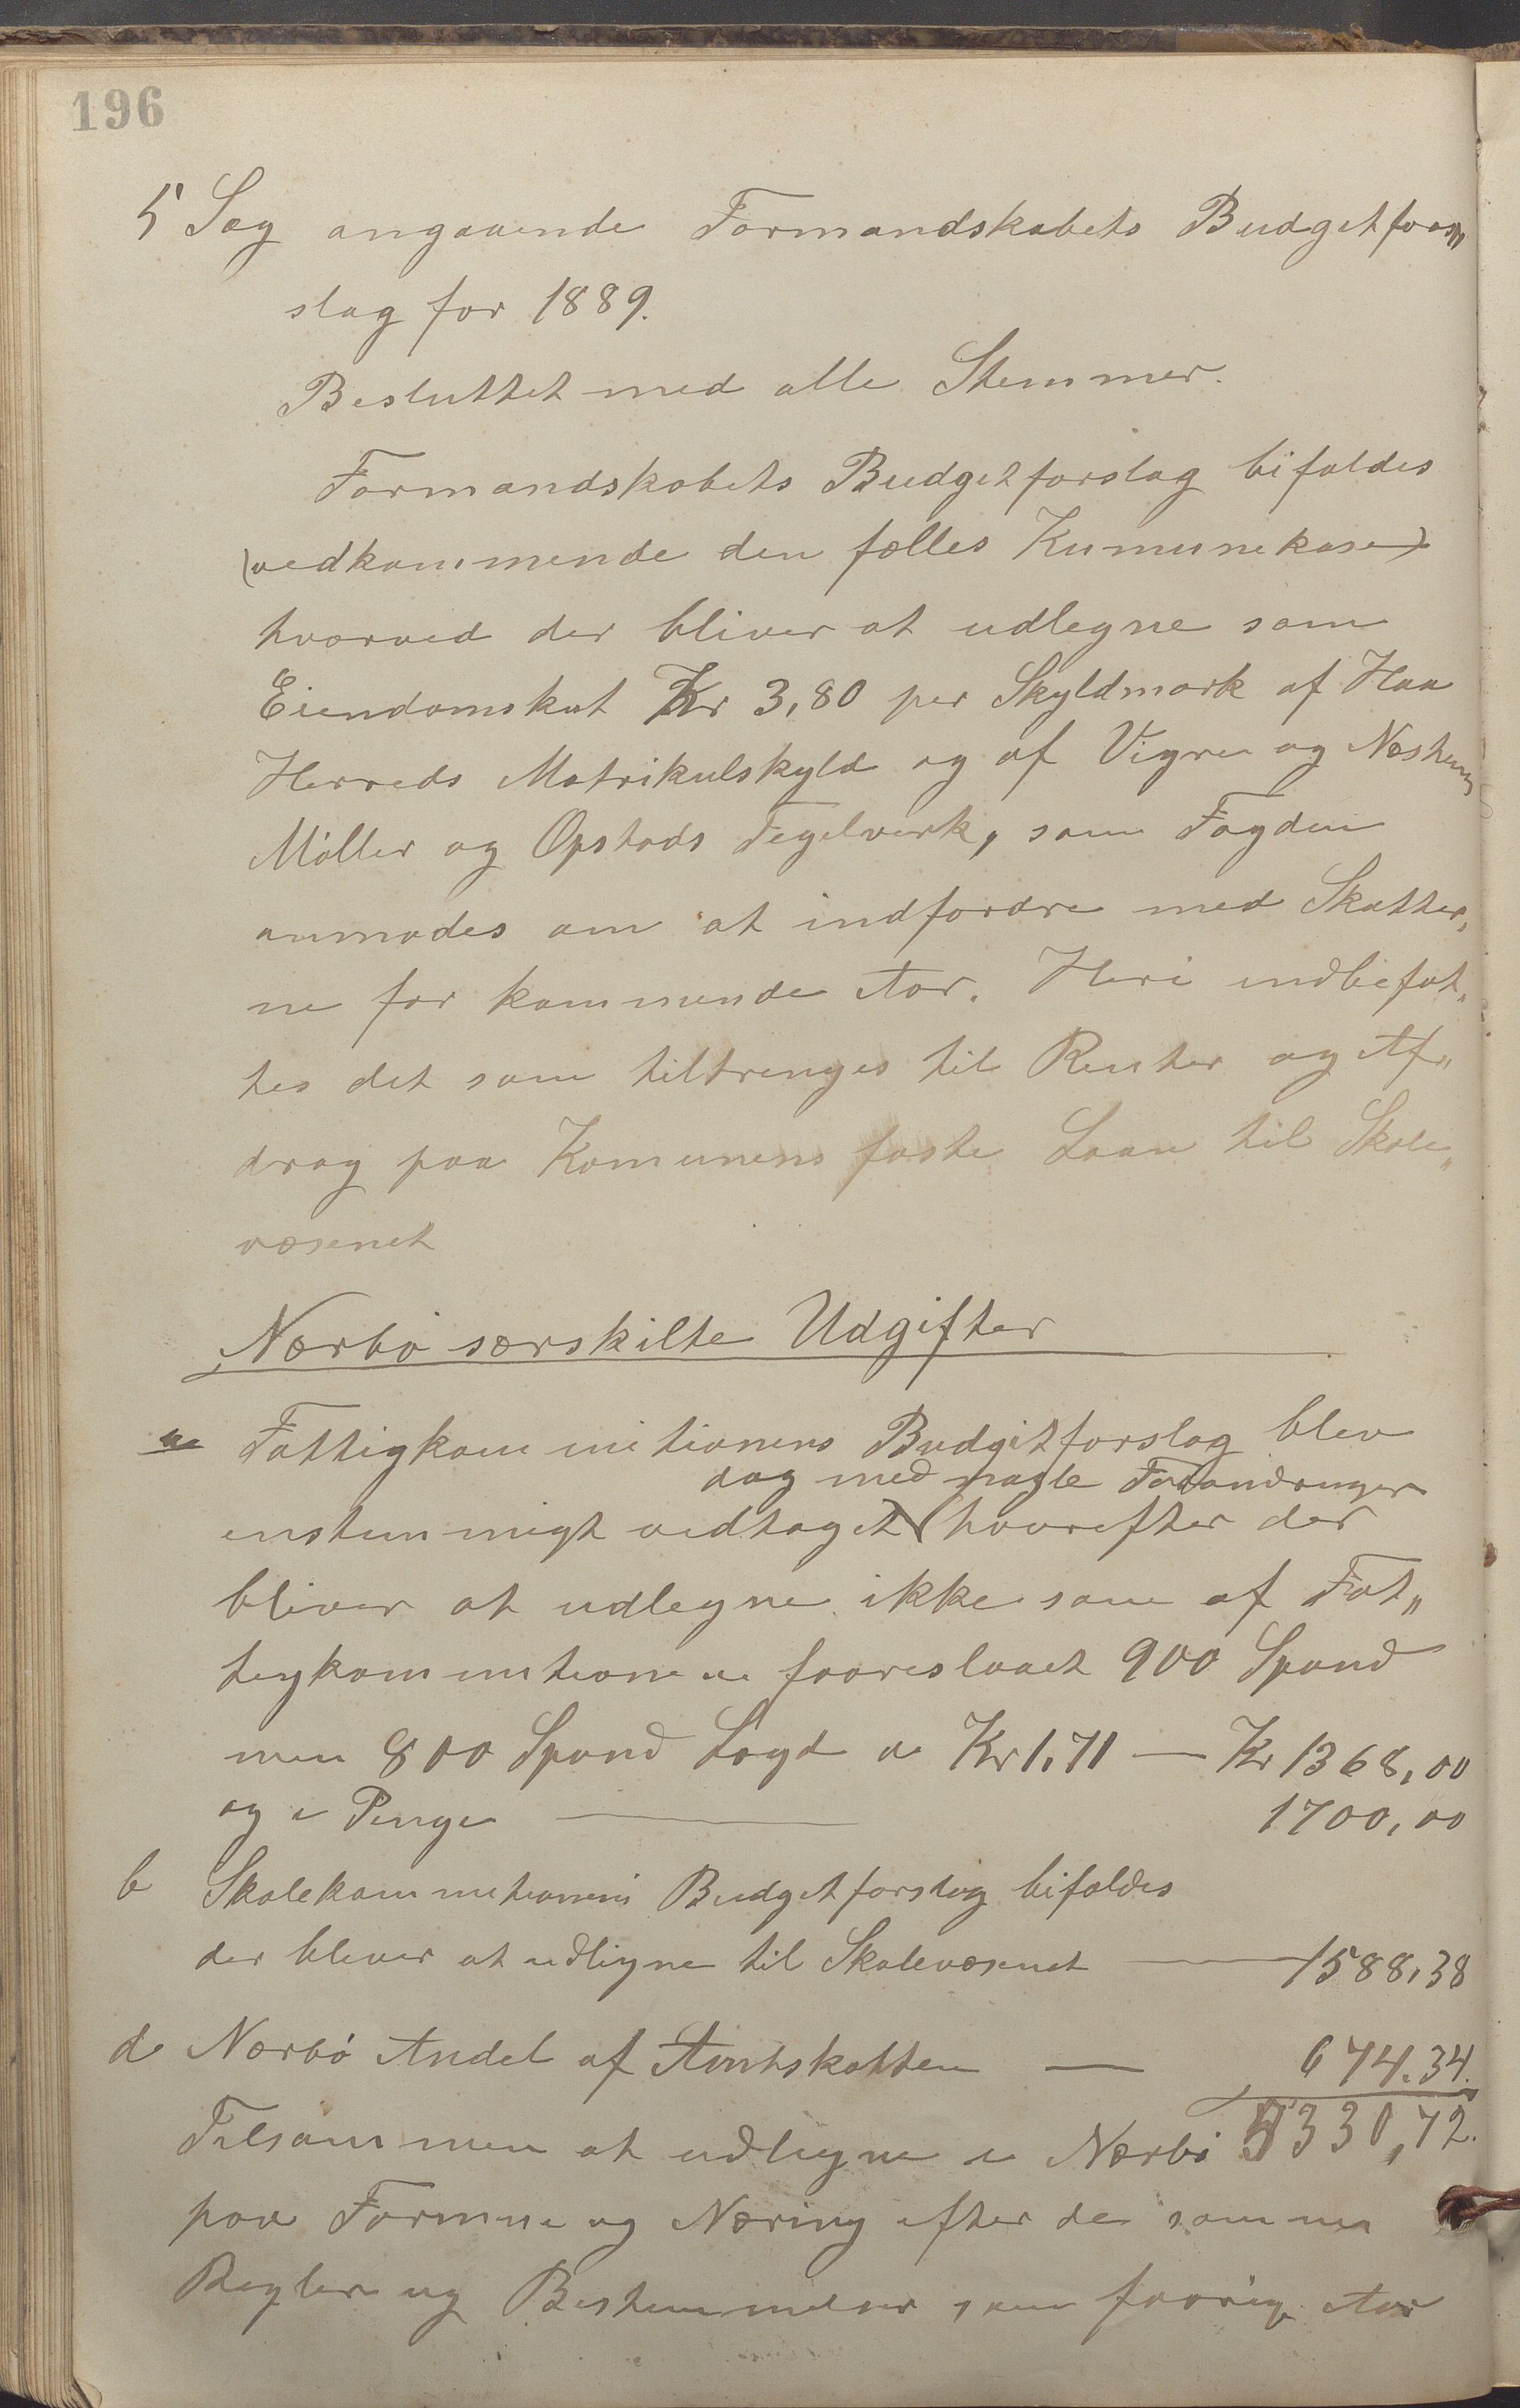 196
5 Sag angaaende Formandskabets Budgetfors„
slag for 1889.
Besluttet med alle Stemmer.
Formandskabets Budgetforslag bifaldes
(vedkommende den fælles Kumunekase)
hvorved der bliver at udlegne som
Eiendomskat Kr 3,80 per Skyldmark af Haa
Herreds Matrikulskyld og af Vigre og Næsheim
Møller og Opstads Tegelverk, som Fogden
anmodes om at indfordre med Skatter„
ne for kommende Aar. Heri indbefat„
tes det som tiltrenges til Renter og Af„
drag paa Komunens faste Laan til Skole„
væsenet
Nærbø særskilte Udgifter
a Fattigkommitionens Budgetforslag blev
dog med nogle Forandringer
enstemmigt vedtaget (hvorefter der
bliver at udlegne ikke som af Fat„
tigkommitione n fooreslaaet 900 Spand
men 800 Spand Lægd a Kr 1,71 — Kr 1368,00
og i Penge — 1700,00
b Skolekommitionens Budgetforslag bifaldes
der bliver at udligne til Skolevæsenet — 1588,38
d Nærbø Andel af Amtskatten — 674.34.
Tilsammen at udligne i Nærbø 5330,72.
paa Formue og Næring efter de samme
Regler og Bestemmelser som foorige Aar